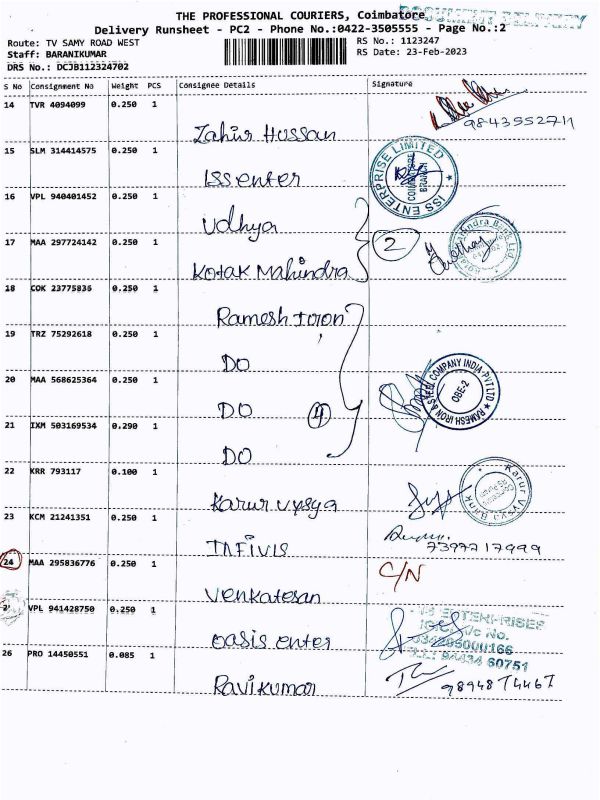 DOCUMENT DELIVERY
THE PROFESSIONAL COURIERS, Coimbatore
Delivery Runsheet - PC2 - Phone No.:0422-3505555 - Page No.:2
Route: TV SAMY ROAD WEST RS No.: 1123247
Staff: BARANIKUMAR RS Date: 23-Feb-2023
DRS No.: DCJB112324702
S No Consignment No Weight PCS Consignee Details Signature
14 TVR 4094099 0.250 1
Zahir Hussan 9843552711
15 SLM 314414575 0.250 1
ISS enter ISS ENTERPRISE LIMITED COIMBATORE BRANCH
16 VPL 940401452 0.250 1
Udhya
17 MAA 297724142 0.250 1 2
Kotak Mahindra
18 COK 23775836 0.250 1
Ramesh Iron
19 TRZ 75292618 0.250 1
DO
20 MAA 568625364 0.250 1
DO 4 RAMESH IRON & STEEL COMPANY INDIA PVT LTD CBE-2
21 IXM 503169534 0.290 1
DO
22 KRR 793117 0.100 1
Karur Vysya Karur Vysya Bank
23 KCM 21241351 0.250 1
7397717999
24 MAA 295836776 0.250 1 C/N
Venkatesan
VPL 941428750 0.250 1
Oasis enter
26 PRO 14450551 0.085 1
Ravikumar